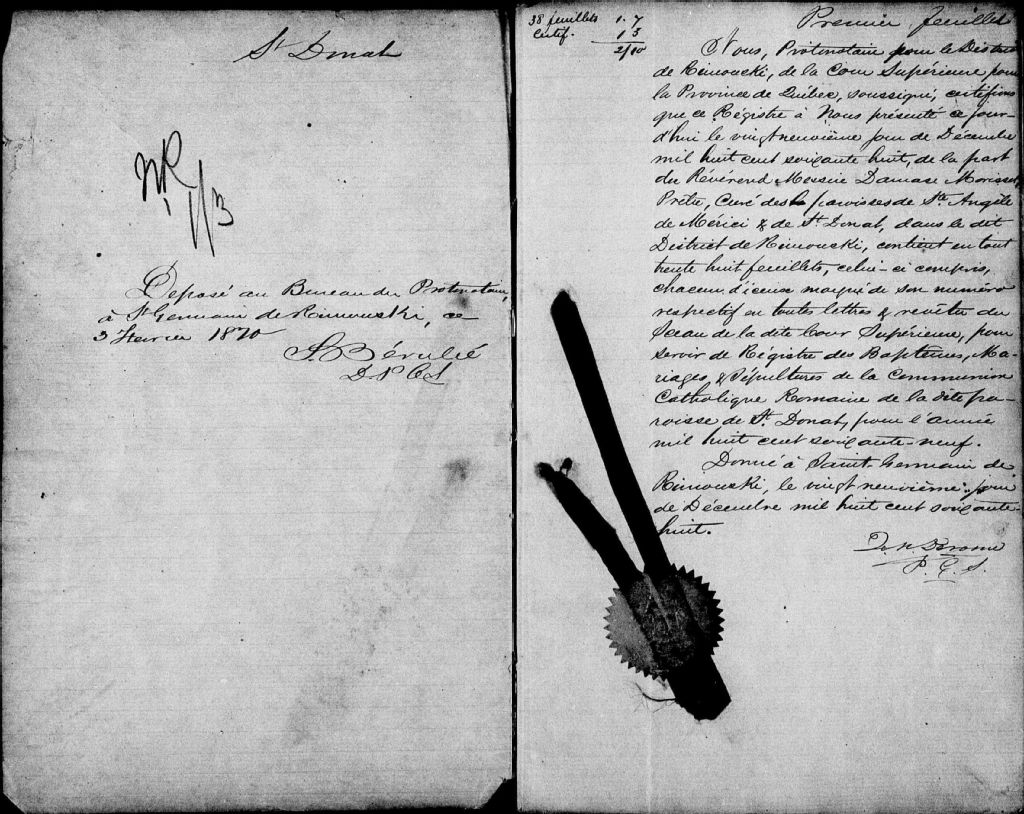 St Donat
Deposé au Bureau du Protonotaire,
à St Germain de Rimouski, ce
3 Fevrier 1870
D P C S
38 feuillets 1.7
Certif. 13
2/10
Premier feuillet
Nous, Protonotaire pour le District
de Rimouski, de la Cour Supérieure pour
la Province de Québec, soussigné, certifions
que ce Régistre à Nous présenté ce jour-
d'hui le vingt neuvième jour de Décembre
mil huit cent soixante huit, de la part
du Révérend Messire Damase Morisset,
Prêtre, Curé des paroisses de Ste Angèle
de Mérici & de St Donat, dans le dit
District de Rimouski, contient en tout
trente huit feuillets, celui-ci compris,
chacun d'iceux marqué de son numéro
respectif en toutes lettres & revêtu du
Sceau de la dite Cour Supérieure, pour
servir de Régistre des Baptêmes, Ma-
riages & Sépultures de la Communion
Catholique Romaine de la dite pa-
roisse de St. Donat, pour l'année
mil huit cent soixante-neuf.
Donné à Saint-Germain de
Rimouski, le vingt neuvième jour
de Décembre mil huit cent soixante-
huit.
P. C. S.